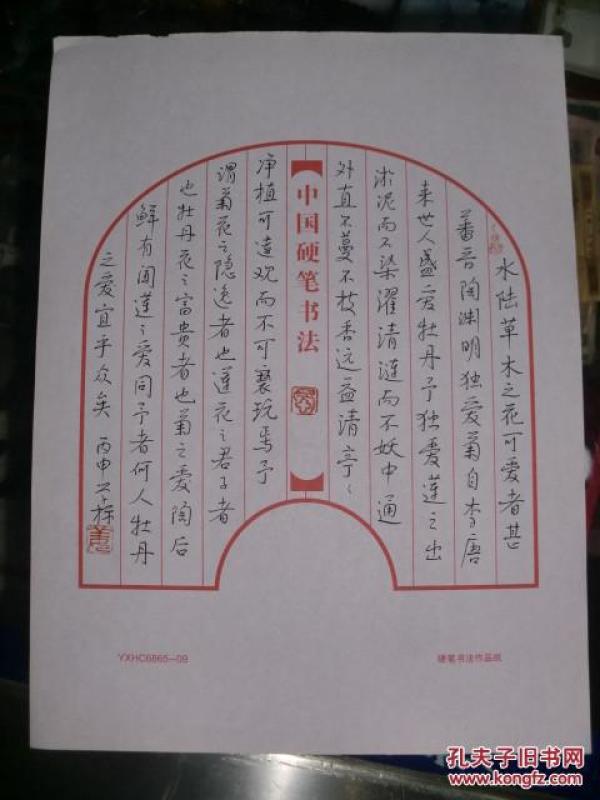 水陆草木之花可爱者甚
蕃晋陶渊明独爱菊自李唐
来世人盛爱牡丹予独爱莲之出
淤泥而不染濯清涟而不妖中通
外直不蔓不枝香远益清亭〻
中国硬笔书法
净植可远观而不可亵玩焉予
谓菊花之隐逸者也莲花之君子者
也牡丹花之富贵者也菊之爱陶后
鲜有闻莲之爱同予者何人牡丹
之爱宜乎众矣 丙申
YXHC6865—09
硬笔书法作品纸
孔夫子旧书网
www.kongfz.com